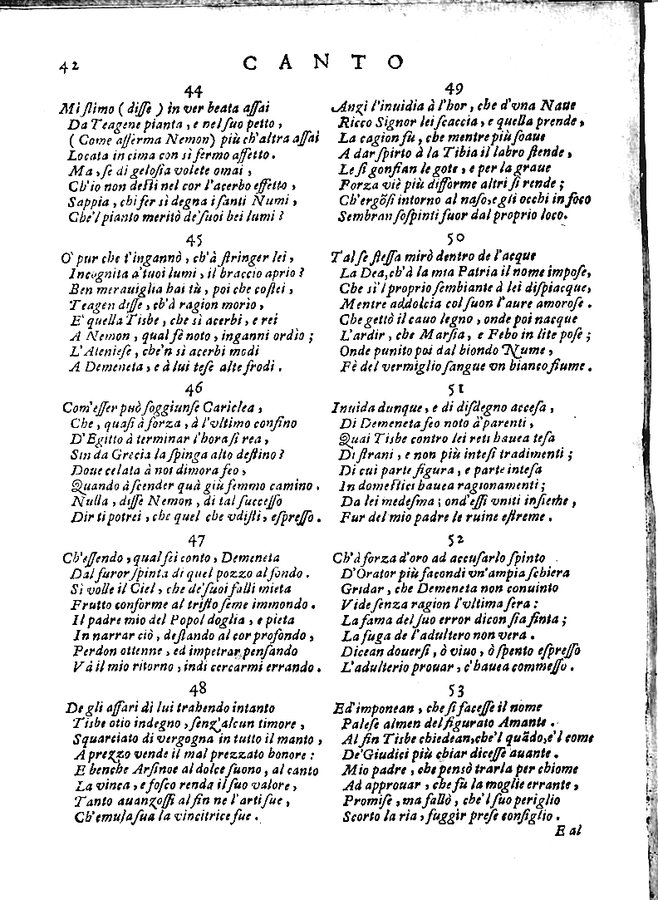 42
CANTO
44
Mi ſtimo ( diſſe ) in ver beata aſſai
Da Teagene pianta, e nel ſuo petto,
( Come aſſerma Nemon) più ch'altra aſſai
Locata in cima con sì fermo affetto.
Ma, ſe di geloſia volete omai,
Ch'io non deſti nel cor l'acerbo effetto,
Sappia, chi fer sì degna i ſanti Numi,
Che'l pianto meritò de'ſuoi bei lumi?
45
O' pur che t'ingannò, ch'à ſtringer lei,
Incognita a'tuoi lumi, il braccio aprio?
Ben merauiglia hai tù, poi che coſtei,
Teagen diſſe, ch'à ragion morìo,
E' quella Tisbe, che sì acerbi, e rei
A Nemon, qual fè noto, inganni ordìo;
L'Atenieſe, che'n sì acerbi modi
A Demeneta, e à lui teſe alte frodi.
46
Com'eſſer può ſoggiunſe Cariclea,
Che, quaſi à forza, à l'vltimo confino
D'Egitto à terminar l'hora ſi rea,
Sin da Grecia la ſpinga alto deſtino?
Doue celata à noi dimora feo,
Quando à ſcender quà giù femmo camino.
Nulla, diſſe Nemon, di tal ſucceſſo
Dir ti potrei, che quel che vdiſti, eſpreſſo.
47
Ch'eſſendo, qual ſei conto, Demeneta
Dal furor ſpinta di quel pozzo al fondo.
Sì volle il Ciel, che de'ſuoi falli mieta
Frutto conforme al triſto ſeme immondo.
Il padre mio del Popol doglia, e pieta
In narrar ciò, deſtando al cor profondo,
Perdon ottenne, ed impetrar penſando
Và il mio ritorno, indi cercarmi errando.
48
De gli affari di lui trahendo intanto
Tisbe otio indegno, ſenz'alcun timore,
Squarciato di vergogna in tutto il manto,
A prezzo vende il mal prezzato honore:
E benche Arſinoe al dolce ſuono, al canto
La vinca, e foſco renda il ſuo valore,
Tanto auanzoſſi al fin ne l'arti ſue,
Ch'emula ſua la vincitrice fue.
49
Anzi l'inuidia à l'hor, che d'vna Naue
Ricco Signor lei ſcaccia, e quella prende,
La cagion fù, che mentre più ſoaue
A dar ſpirto à la Tibia il labro ſtende,
Le ſi gonfian le gote, e per la graue
Forza viè più difforme altrì ſi rende;
Ch'ergõſi intorno al naſo, e gli occhi in foco
Sembran ſoſpinti fuor dal proprio loco.
50
Tal ſe ſteſſa mirò dentro de l'acque
La Dea, ch'à la mia Patria il nome impoſe,
Che sì'l proprio ſembiante à lei diſpiacque,
Mentre addolcia col ſuon l'aure amoroſe.
Che gettò il cauo legno, onde poi nacque
L'ardir, che Marſia, e Febo in lite poſe;
Onde punito poi dal biondo Nume,
Fè del vermiglio ſangue vn bianco fiume.
51
Inuida dunque, e di diſdegno acceſa,
Di Demeneta feo noto à'parenti,
Quai Tisbe contro lei reti hauea teſa
Di ſtrani, e non più inteſi tradimenti;
Di cui parte figura, e parte inteſa
In domeſtici hauea ragionamenti;
Da lei medeſma; ond'eſſi vniti inſieme,
Fur del mio padre le ruine eſtreme.
52
Ch'à forza d'oro ad accuſarlo ſpinto
D'Orator più facondi vn'ampia ſchiera
Gridar, che Demeneta non conuinto
Vide ſenza ragion l'vltima ſera:
La fama del ſuo error dicon ſia finta;
La fuga de l'adultero non vera.
Dicean douerſi, ò viuo, ò ſpento eſpreſſo
L'adulterio prouar, c'hauea commeſſo.
53
Ed'imponean, che ſi faceſſe il nome
Paleſe almen del figurato Amante.
Al fin Tisbe chiedean, che'l quãdo, e'l come
De'Giudici più chiar diceſſe auante.
Mio padre, che pensò trarla per chiome
Ad approuar, che fù la moglie errante,
Promiſe, ma fallò, che'l ſuo periglio
Scorto la ria, fuggir preſe conſiglio.
E al